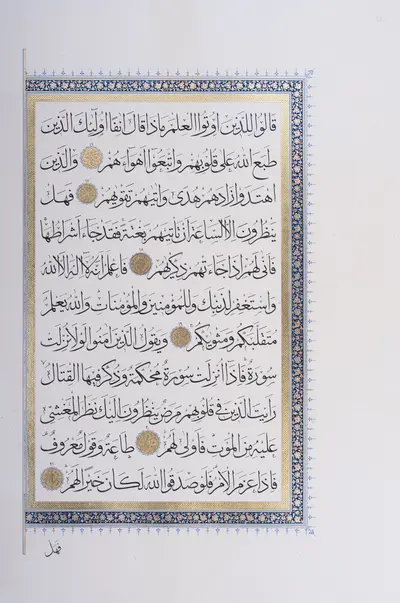 قالوا للذين اوتوا العلم ماذا قال انفا اولئك الذين
طبع الله على قلوبهم واتبعوا اهواءهم والذين
اهتدوا زادهم هدى واتيهم تقويهم فهل
ينظرون الا الساعة ان تاتيهم بغتة فقد جاء اشراطها
فانى لهم اذا جاءتهم ذكريهم فاعلم انه لا اله الا الله
واستغفر لذنبك وللمؤمنين والمؤمنات والله يعلم
متقلبكم ومثويكم ويقول الذين امنوا لولا نزلت
سورة فاذا انزلت سورة محكمة وذكر فيها القتال
رايت الذين في قلوبهم مرض ينظرون اليك نظر المغشي
عليه من الموت فاولى لهم طاعة وقول معروف
فاذا عزم الامر فلو صدقوا الله لكان خيرا لهم
فهل